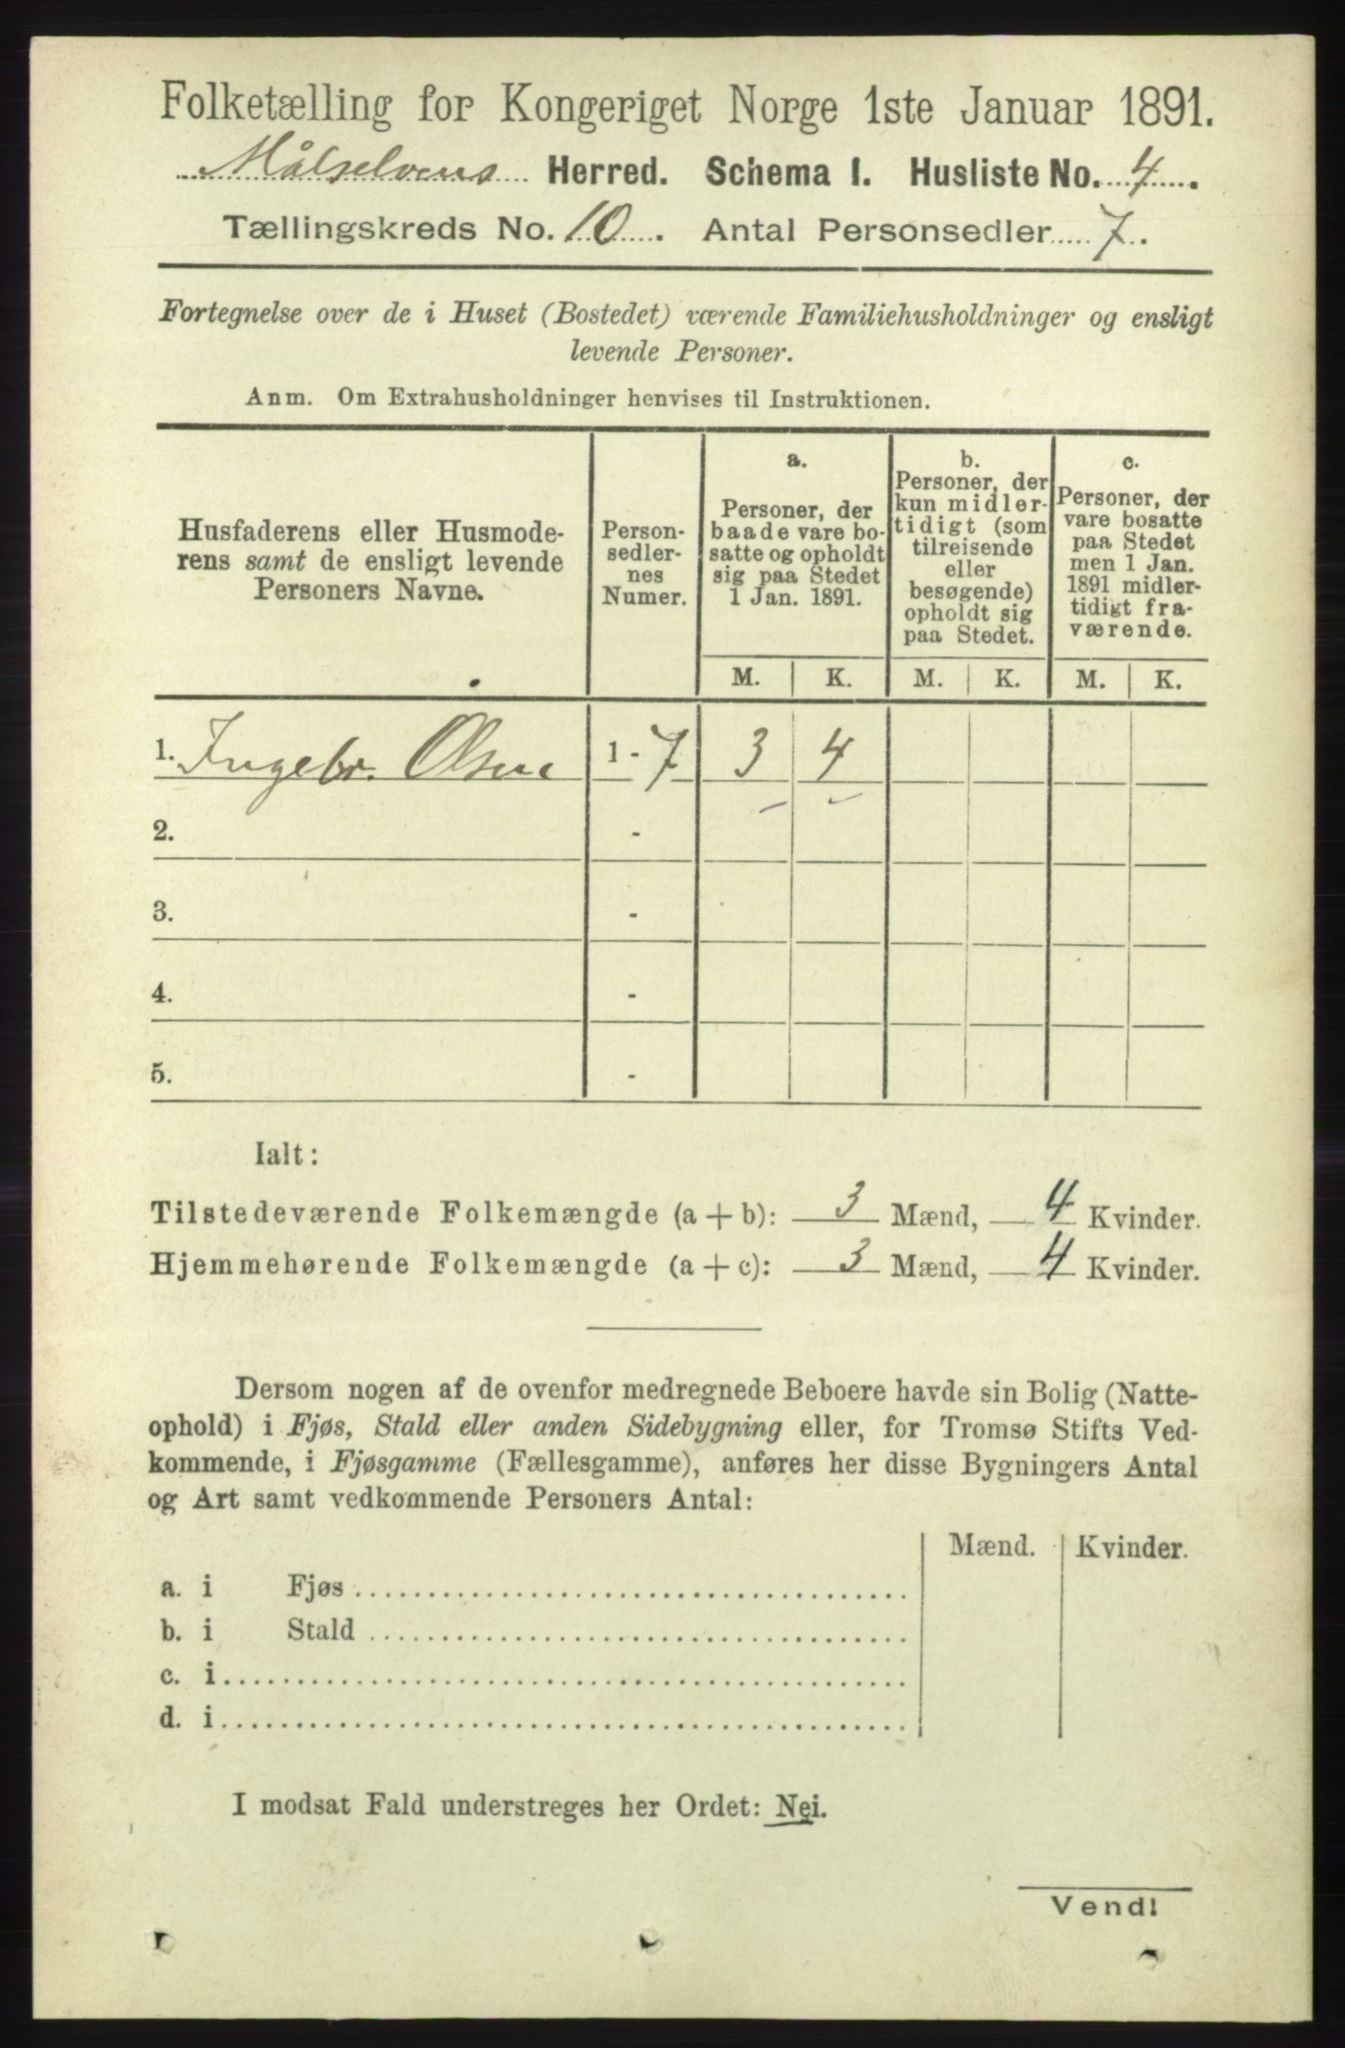 Folketælling for Kongeriget Norge 1ste Januar 1891.
Målselvens Herred. Schema I. Husliste No. 4.
Tællingskreds No. 10. Antal Personsedler 7.
Fortegnelse over de i Huset (Bostedet) værende Familiehusholdninger og ensligt
levende Personer.
Anm. Om Extrahusholdninger henvises til Instruktionen.
Husfaderens eller Husmode-
rens samt de ensligt levende
Personers Navne.
Person-
sedler-
nes
Numer.
a.
Personer, der
baade vare bo-
satte og opholdt
sig paa Stedet
1 Jan. 1891.
b.
Personer, der
kun midler-
tidigt (som
tilreisende
eller
besøgende)
opholdt sig
paa Stedet.
c.
Personer, der
vare bosatte
paa Stedet
men 1 Jan.
1891 midler-
tidigt fra-
værende.
M. K. M. K. M. K.
1. Ingebr. Olsen 1 - 7 3 4
2. -
3. -
4. -
5. -
Ialt:
Tilstedeværende Folkemængde (a + b): 3 Mænd, 4 Kvinder.
Hjemmehørende Folkemængde (a + c): 3 Mænd, 4 Kvinder.
Dersom nogen af de ovenfor medregnede Beboere havde sin Bolig (Natte-
ophold) i Fjøs, Stald eller anden Sidebygning eller, for Tromsø Stifts Ved-
kommende, i Fjøsgamme (Fællesgamme), anføres her disse Bygningers Antal
og Art samt vedkommende Personers Antal:
Mænd. Kvinder.
a. i Fjøs
b. i Stald
c. i
d. i
I modsat Fald understreges her Ordet: Nei.
Vend!